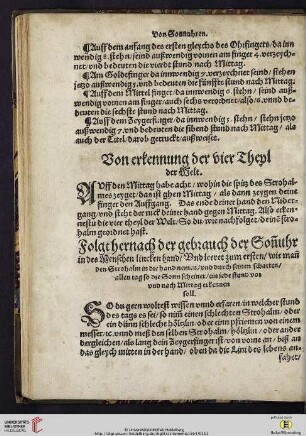 Von Sonnuhren.
¶Auff dem anfang des ersten gleychs des Ohrfingers/ da inn
wendig 8. stehn/ seind außwendig vornen am finger 4. verzeych-
net/ vnd bedeuten die vierdt stund nach Mittag.
¶Am Goldtfinger da innwendig 7. verzeychnet sind/ stehen
jetzo außwendig 5. vnd bedeuten die fünffte stund nach Mittag.
¶Auff dem Mittel finger/ da innwendig 6. stehn/ seind auß-
wendig vornen am finger auch sechs verordnet/ also 6. vnnd be-
deuten die sechste stund nach Mittag.
¶Auff dem Zeygerfinger/ da innwendig 5. stehn/ stehn jetzo
außwendig 7. vnd bedeuten die sibend stund nach Mittag/ als
auch der Titel/ darob getruckt/ außweiset.
Von erkennung der vier Theyl
der Welt.
AVff den Mittag hab acht/ wohin die spitz des Strohal-
mes zeyget/ das ist ghen Mittag/ als dann zeygen deine
finger den Auffgang. Das ende deiner hand den Nider-
gang/ vnd steht der ruck deiner hand gegen Mittag. Also erken-
nestu die vier theyl der Welt. So du wie nachfolget/ deine stro-
halm geordnet hast.
Folgt hernach der gebrauch der Soñuhr
in des Menschen lincken hand/ Vnd lernet zum ersten/ wie man
den Strohalm in die hand nemen/ vnd durch seinen schatten/
allen tag so die Sonn scheinet/ ein jede stund vor
vnd nach Mittag erkennen
soll.
SO du gern woltest wissen vnnd erfaren/ in welcher stund
des tags es sei/ so nim einen schlechten Strohalm/ oder
ein dünn schlecht höltzlin/ oder einn pfriemen von einem
messer/ ꝛc. vnnd meß den selben Strohalm/ höltzlin/ oder ander
dergleichen/ als lang dein Zeygerfinger ist von vorne an/ biß an
das gleych mitten in der hand/ oben da die Lini des lebens an-
fahet/